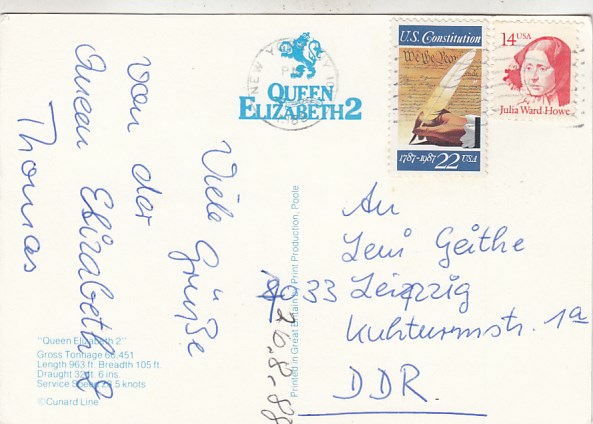 Viele Grüße
von der
Queen Elizabeth 2
Thomas
QUEEN
ELIZABETH 2
NEW YO
U.S. Constitution
We the People
1787-1987 22 USA
14 USA
Julia Ward Howe
An
Leni Geithe
7033 Leipzig
Kuhturmstr. 1a
DDR.
26.8.88
Printed in Great Britain by Print Production, Poole
"Queen Elizabeth 2"
Gross Tonnage 66,451
Length 963 ft. Breadth 105 ft.
Draught 32 ft. 6 ins.
Service Speed 28.5 knots
©Cunard Line